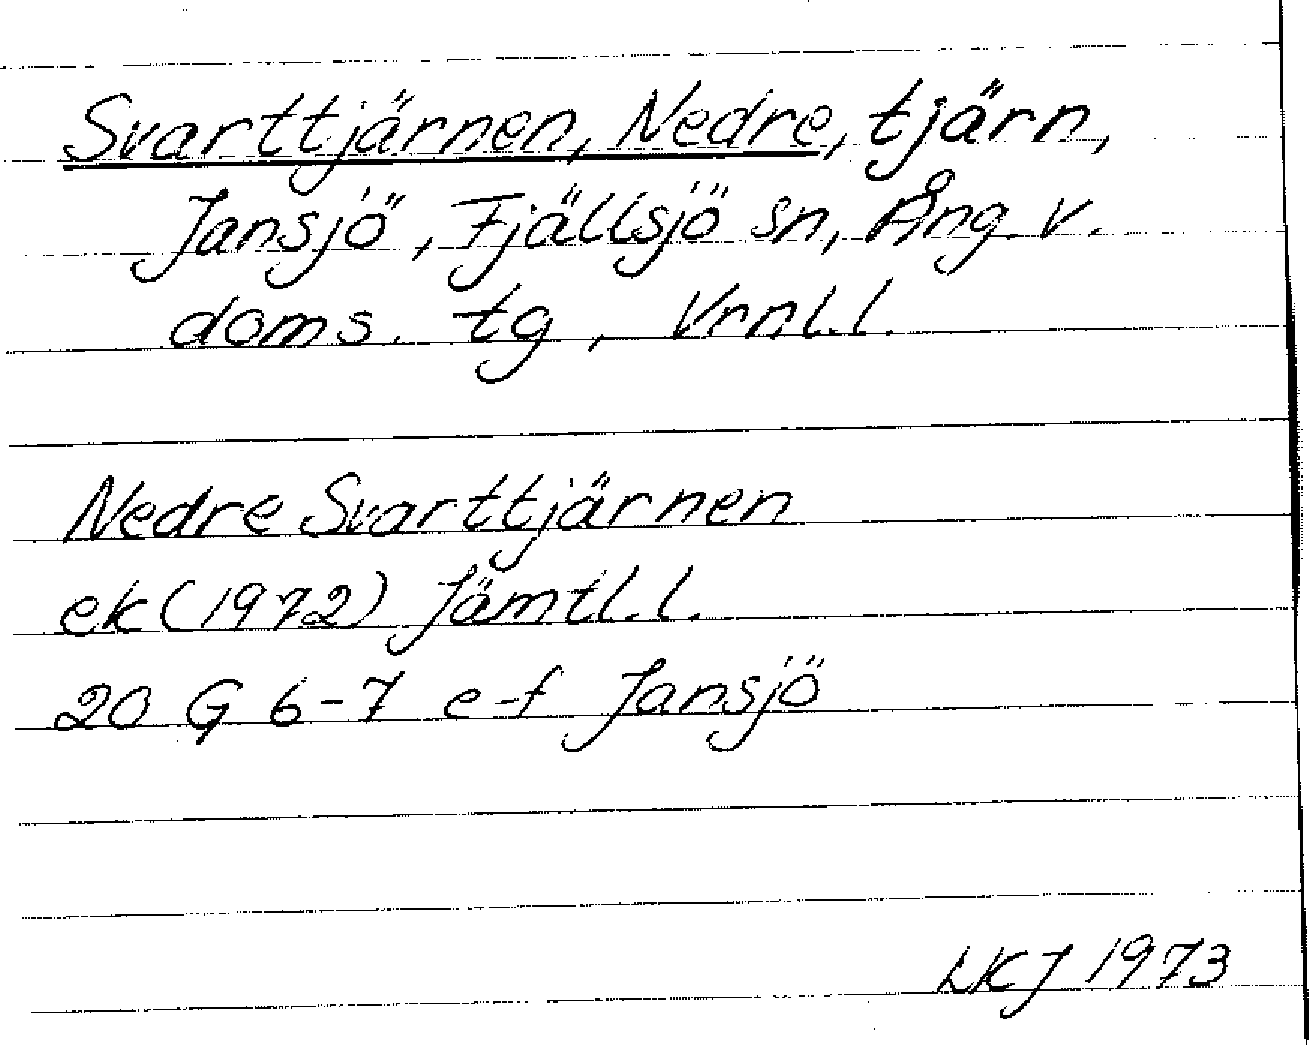 Svarttjärnen, Nedre, tjärn,
Jansjö, Fjällsjö sn, Ång. v.
doms. tg, Vrnl.l.
Nedre Svarttjärnen
ek (1972) Jämtl.l.
20 G 6-7 e-f Jansjö
LKJ 1973